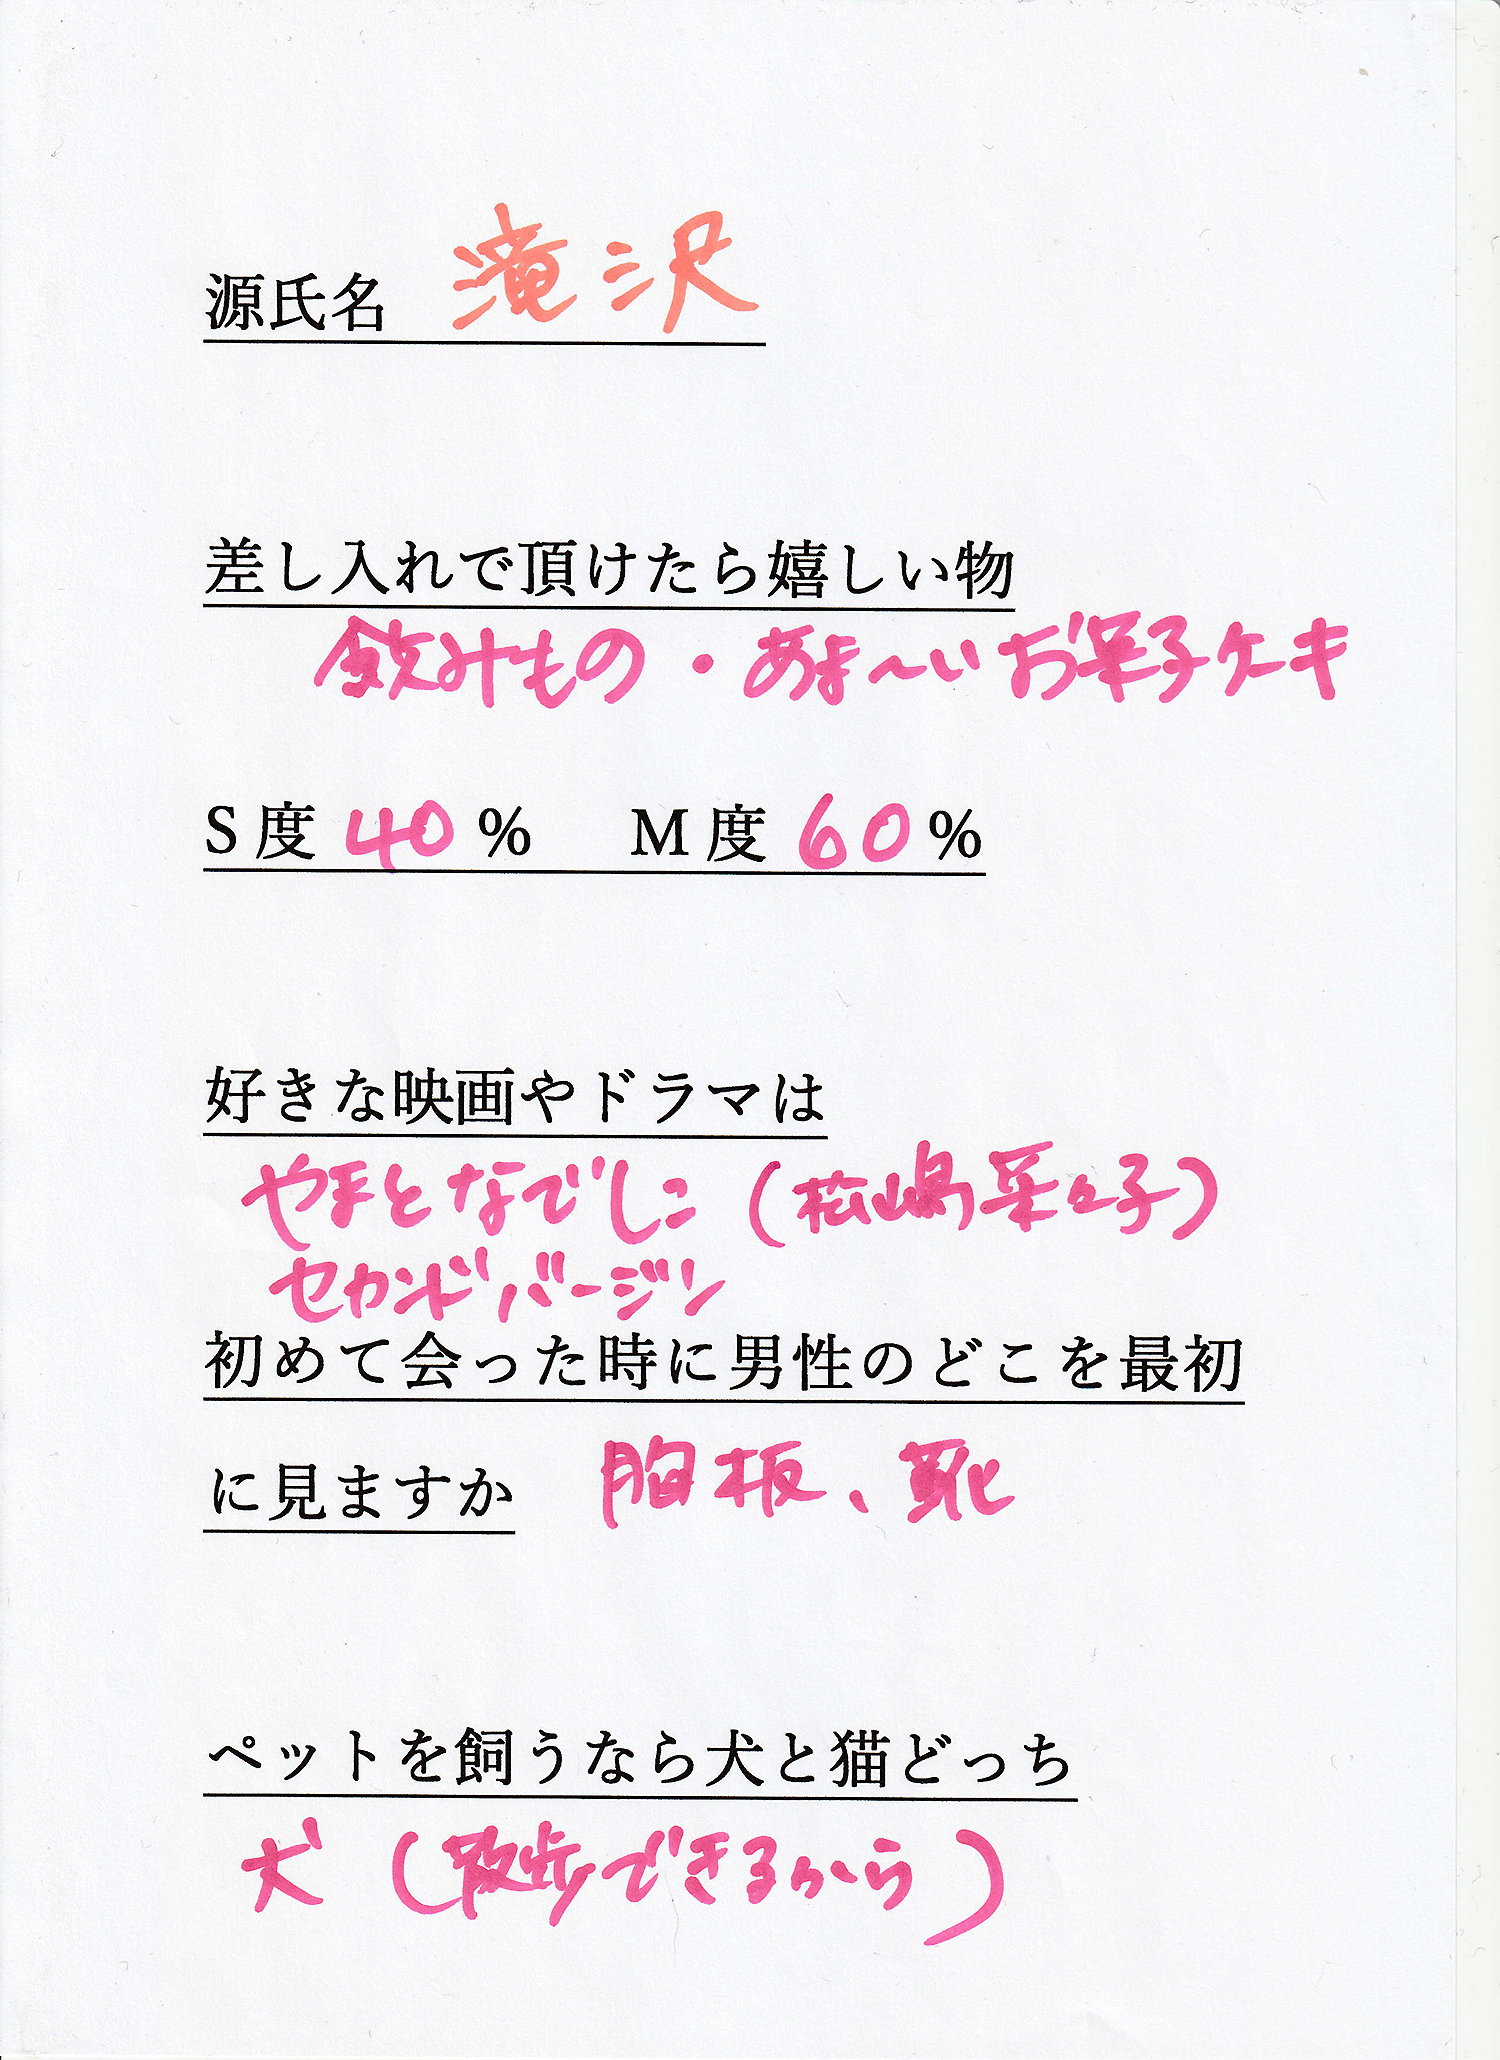 源氏名 滝沢
差し入れで頂けたら嬉しい物
飲みもの・あま〜いお菓子ケーキ
S度 40% M度 60%
好きな映画やドラマは
やまとなでしこ(松嶋菜々子)
セカンドバージン
初めて会った時に男性のどこを最初
に見ますか 胸板、靴
ペットを飼うなら犬と猫どっち
犬(散歩できるから)